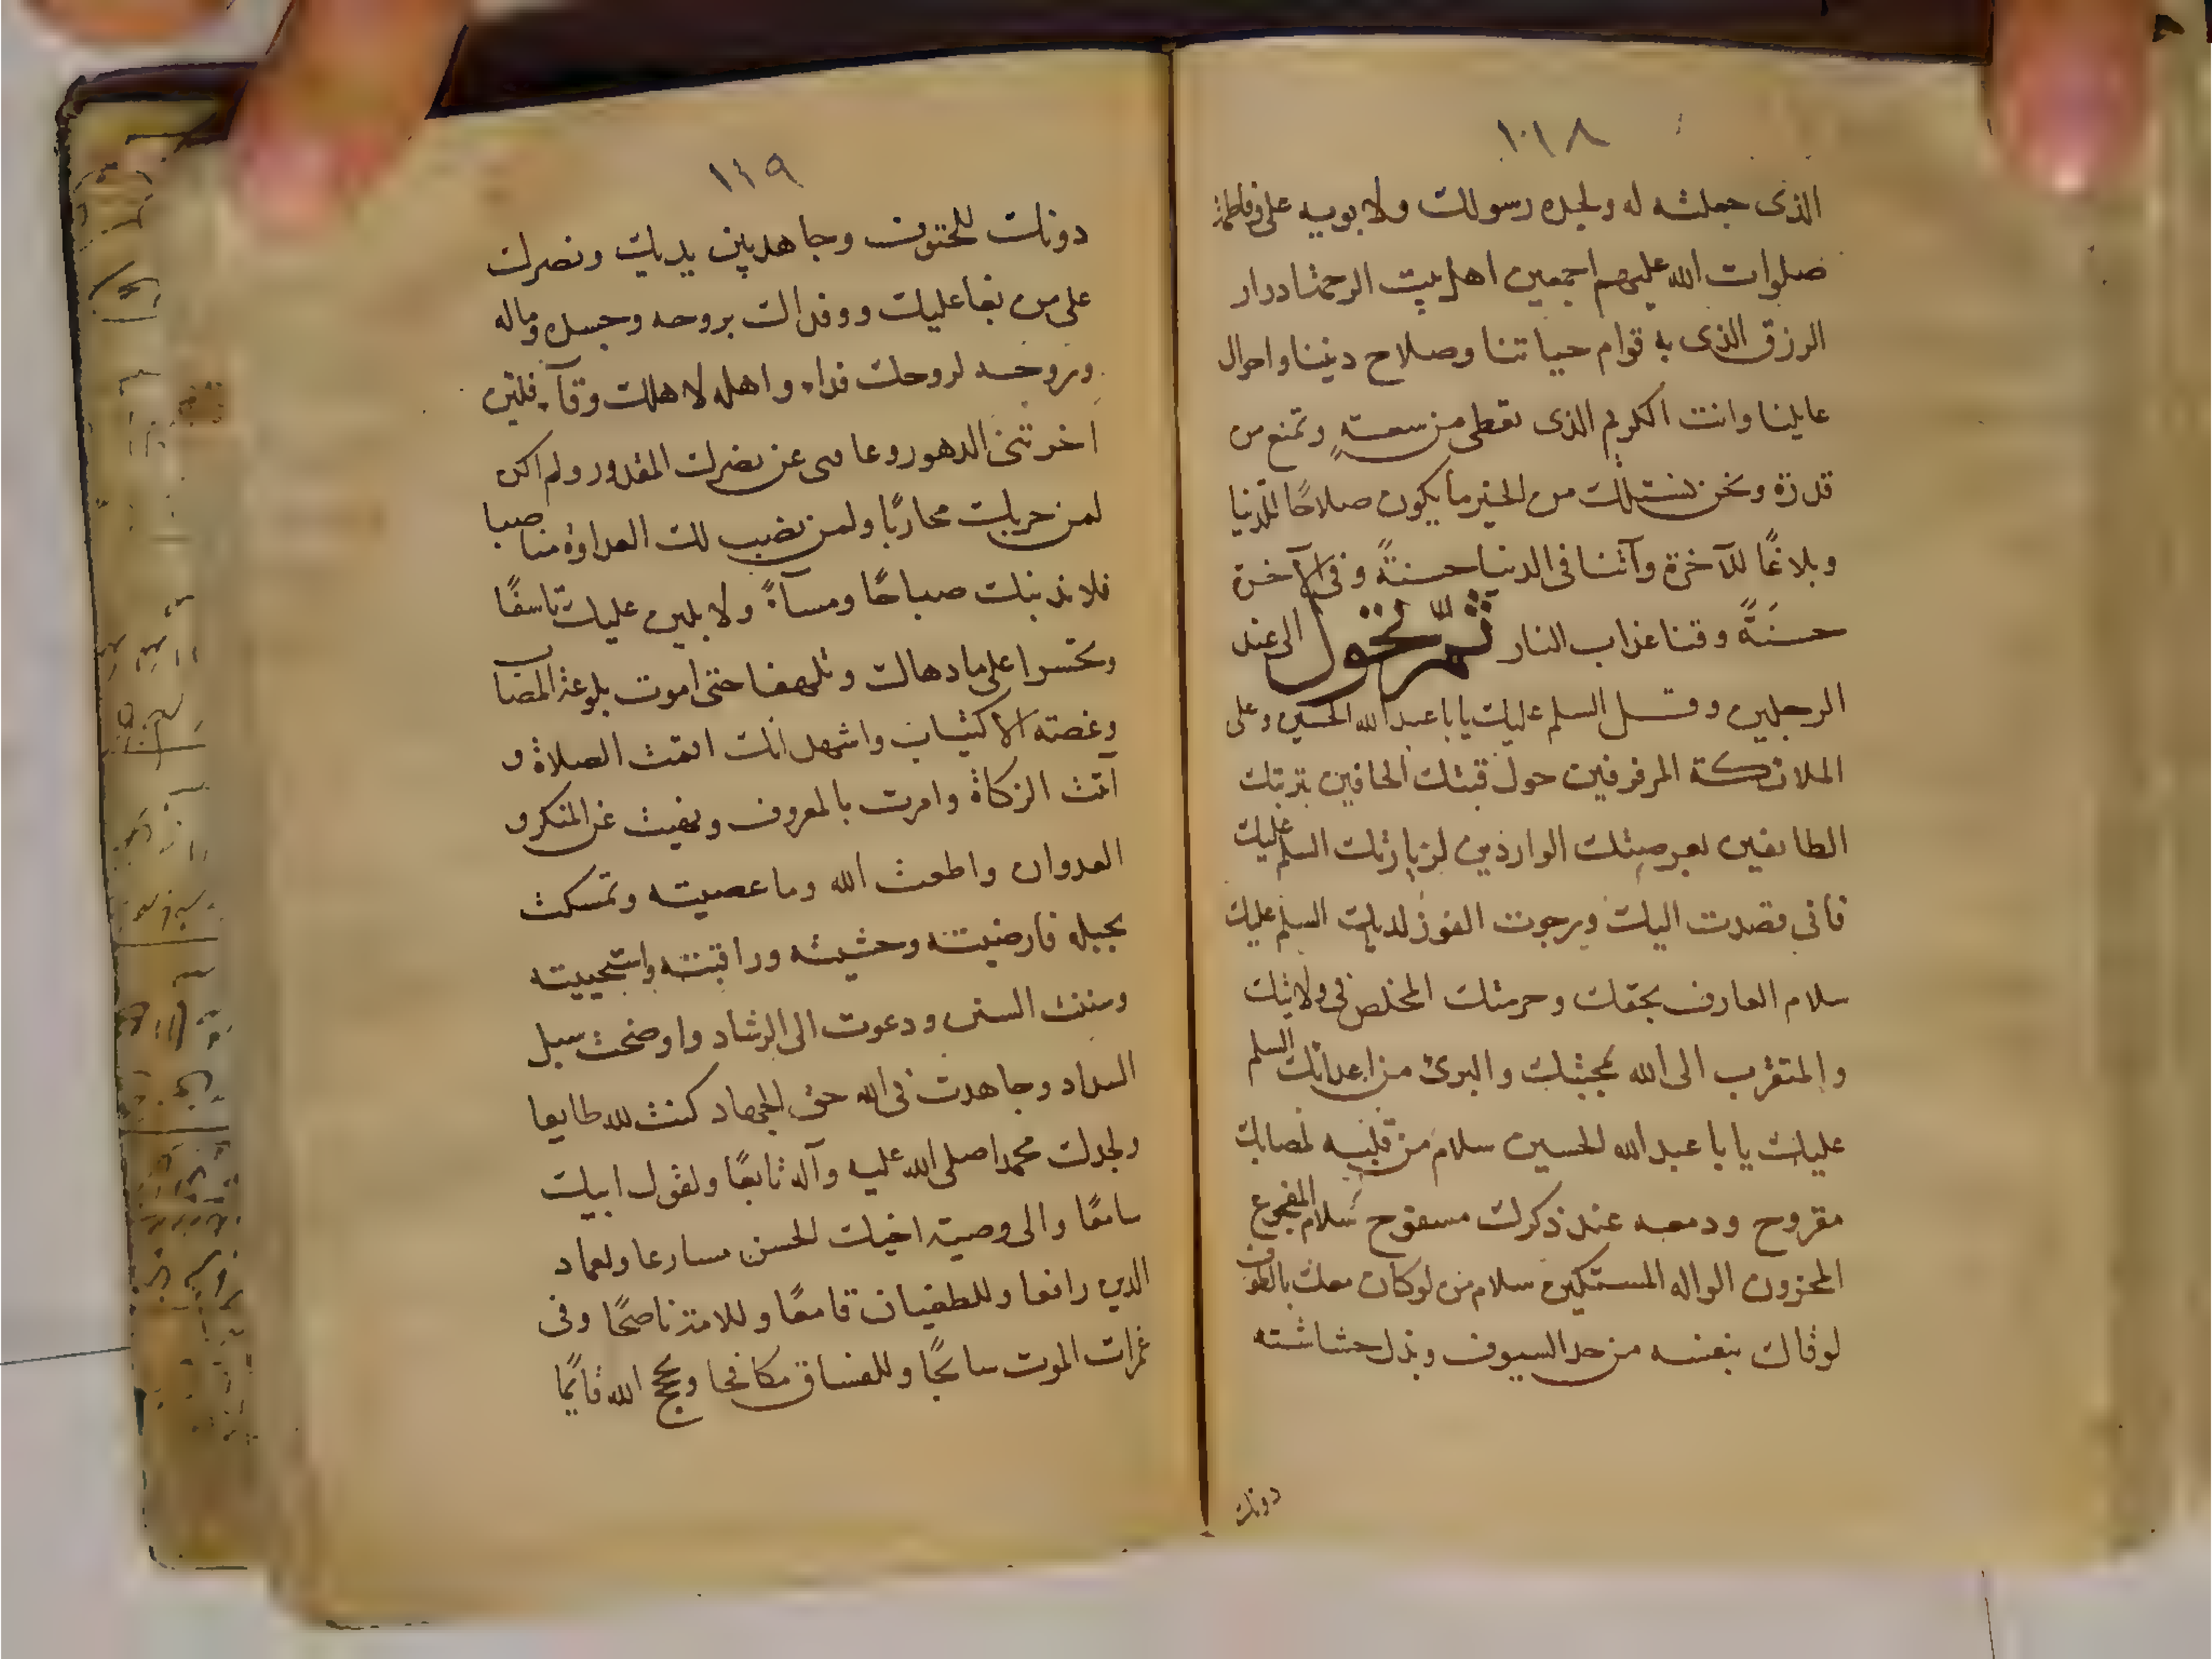 ١١٨
الذى جعلته له ولجده رسولك ولابويه على وفاطمة
صلوات الله عليهم اجمعين اهل بيت الرحمة ادرار
الرزق الذى به قوام حياتنا وصلاح ديننا واحوال
عايلنا وانت الكريم الذى تعطى من سعةٍ وتمنع من
قدرة ونحن نسئلك من الخير ما يكون صلاحًا للدنيا
وبلاغًا للآخرة وآتنا فى الدنيا حسنةً وفى الآخرة
حسنَةً وقنا عذاب النار ثمّ تحّول الى عند
الرجلين وقل السلم عليك يا ابا عبد الله الحسين وعلى
الملائكة المرفرفين حول قبتك الحافين بتربتك
الطايفين بعرصتك الواردين لزيارتك السلم عليك
فانى قصدت اليك ورجوت الفوز لديك السلم عليك
سلام العارف بحقك وحرمتك المخلص فى ولايتك
والمتقرب الى الله بمحبتك والبرئ من اعدائك السلم
عليك يا با عبد الله الحسين سلام من قلبه بمصابك
مقروح ودمعه عند ذكرك مسفوح سلام المفجوع
المحزون الواله المستكين سلام من لو كان معك بالطفوف
لوقاك بنفسه من حد السيوف وبذل حشاشته
دونك
١١٩
دونك للحتوف وجاهد بين يديك ونصرك
على من بغا عليك ووفداك بروحه وجسده وماله
وروحه لروحك فداء واهله لاهلك وقآء فلئن
اخرتنى الدهور وعاقنى عن نصرك المقدور ولم اكن
لمن حربك محاربًا ولمن نصب لك العداوة مناصبا
فلاندبنك صباحًا ومسآءً ولابكين عليك تاسفًا
وتحسرا على ما دهاك وتلهفا حتى اموت بلوعة المصاب
وغصته الاكتياب واشهد انك اقمت الصلاة و
آتيت الزكاة وامرت بالمعروف ونهيت عن المنكر و
العدوان واطعت الله وما عصيته وتمسكت
بحبله فارضيته وخشيته وراقبته واستحييته
وسننت السنن ودعوت الى الرشاد واوضحت سبل
السداد وجاهدت فى الله حق الجهاد كنت لله طايعا
ولجدك محمد صلى الله عليه وآله تابعًا ولقول ابيك
سامعًا والى وصية اخيك الحسن مسارعا ولعماد
الدين رافعا وللطغيان قامعًا وللامة ناصحًا وفى
غمرات الموت سابحًا وللفساق مكافحا وبحجج الله قايمًا